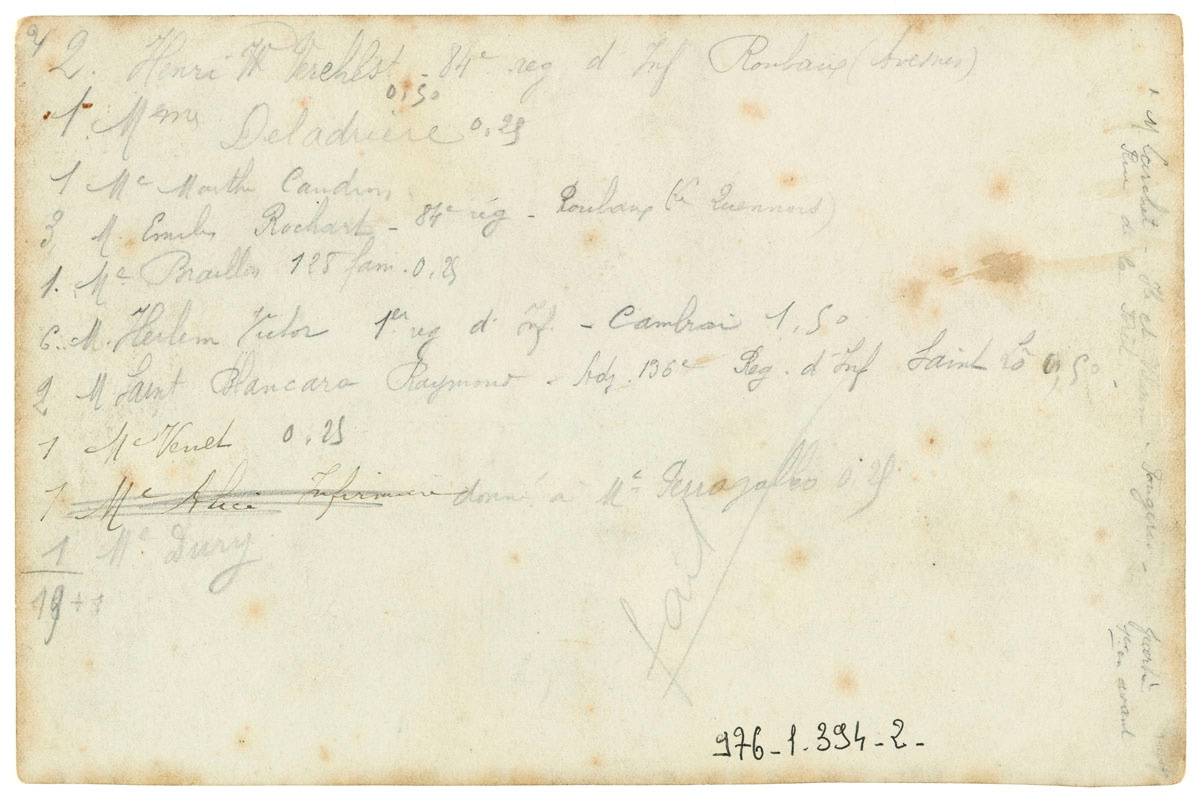 2. Henri W Verchest - 84e reg d'Inf Roubaix (Avesnes)
0,50
1. Meme Deladrière 0,25
1 Me Marthe Caudron
3 M. Emiles Rochart - 84e rég - Roubaix (Le Quennois)
1. Me Brailles 125 fam. 0,25
6. M. Herlem Victor 1er reg d'Inf. - Cambrai 1,50
2 M Saint Blancard Raymond - Adj. 136e Reg. d'Inf Saint Lô 0,50
1 Me Venet 0,25
1 Me Alice Infirmière donné à Me 0,25
1 Me Dury
19 + 1
fait
976-1-394-2-
Rue de la
en avant